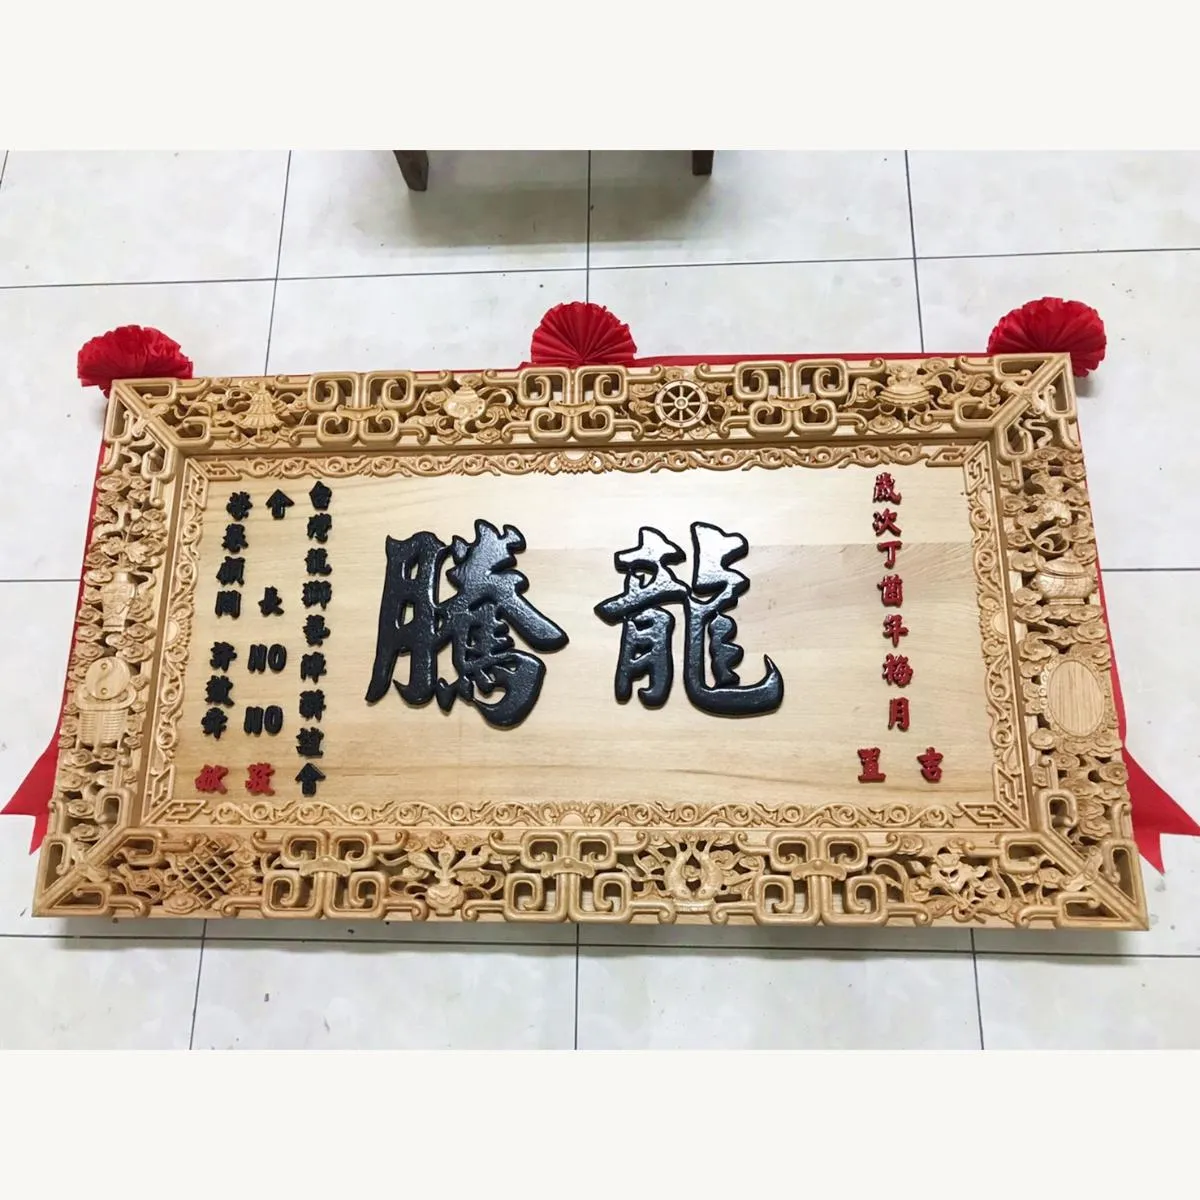 龍騰
歲次丁酉年梅月
吉置
台灣龍獅藝陣聯誼會
會長NONO
榮譽顧問 許
敬獻